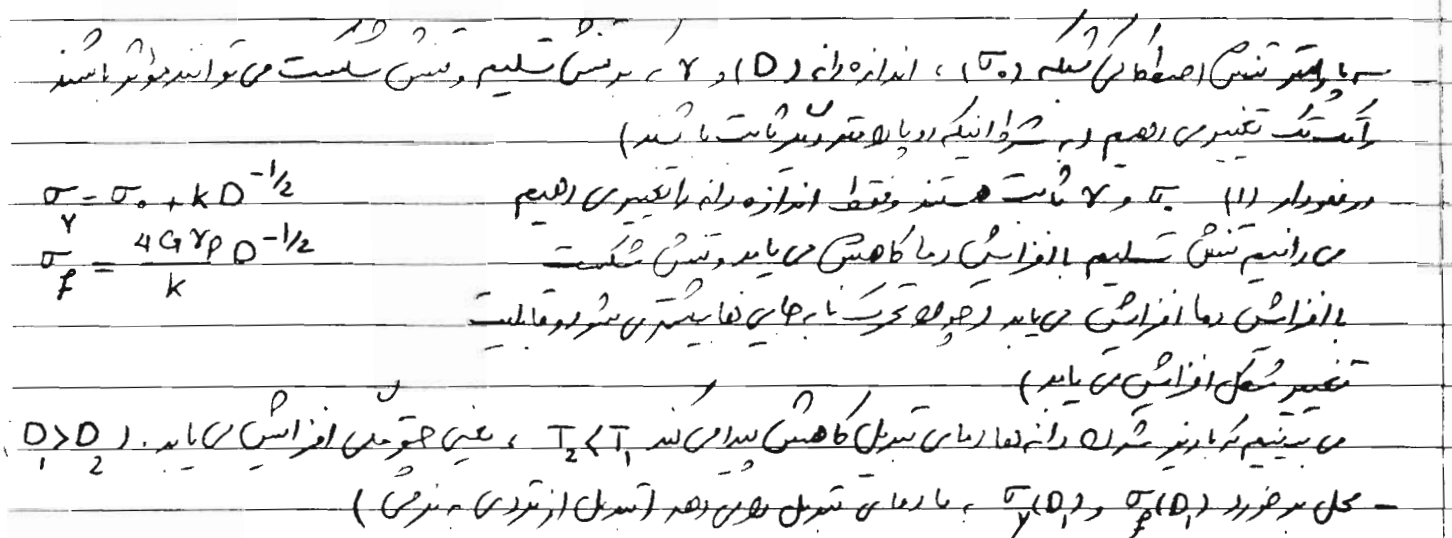 سه پارامتر تنش اصطکاکی شبکه (σ₀)، اندازه دانه (D) و γ، بر تنش تسلیم و تنش شکست می توانند موثر باشند
را تغییر می دهیم (به شرط اینکه دو پارامتر دیگر ثابت باشند)
در نمودار (1) σ₀ و γ ثابت هستند و فقط اندازه دانه را تغییر می دهیم
σ_y = σ₀ + kD^(-1/2)
می دانیم تنش تسلیم با افزایش دما کاهش می یابد و تنش شکست
σ_f = (4Gγ_p / k) D^(-1/2)
با افزایش دما افزایش می یابد (چون تحرک نابه جایی ها بیشتر می شود و قابلیت
تغییر شکل افزایش می یابد)
می بینیم که با ریز شدن دانه ها دمای تبدیل کاهش پیدا می کند T₂<T₁ ، یعنی چقرمگی افزایش می یابد. (D₁>D₂
- محل برخورد σ_f(D₁) و σ_y(D₁) ، ما دمای تبدیل را می دهد (تبدیل از تردی به نرمی)